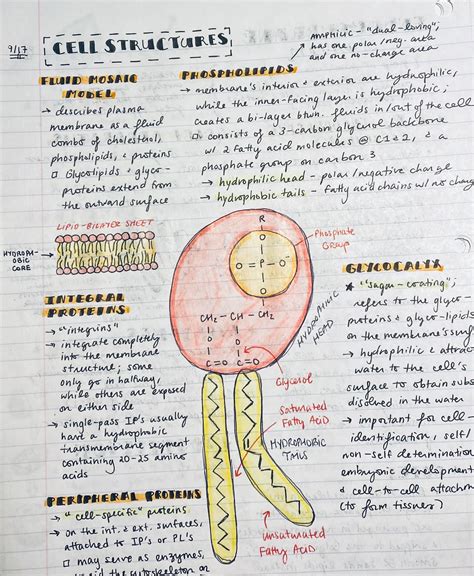 9/17
CELL STRUCTURES
amphilic - "dual-loving";
has one polar/neg. area
and one no-charge area
FLUID MOSAIC
MODEL
→ describes plasma
membrane as a fluid
combo of cholesthol,
phospholipids, & proteins
□ Glycolipids & glyco-
proteins extend from
the outward surface
PHOSPHOLIPIDS
→ membrane's interior & exterior are hydrophilic,
while the inner-facing layer is hydrophobic;
creates a bi-layer btwn. fluids in/out of the cell
□ consists of a 3-carbon glycerol backbone
w/ 2 fatty acid molecules @ C1&2, & a
phosphate group on carbon 3
→ hydrophilic head - polar/negative charge
→ hydrophobic tails - fatty acid chains w/ no charg
LIPID-BILAYER SHEET
HYDROPH-
OBIC
CORE
R
O
O = P - O⁻
O
CH₂ - CH - CH₂
O O
C=O C=O
Phosphate
Group
HYDROPHILIC
HEAD
Glycerol
Saturated
Fatty Acid
HYDROPHOBIC
TAILS
Unsaturated
Fatty Acid
INTEGRAL
PROTEINS
→ "integrins"
→ integrate completely
into the membrane
structure; some
only go in halfway,
while others are exposed
on either side
→ single-pass IP's usually
have a hydrophobic
transmembrane segment
containing 20-25 amino
acids
PERIPHERAL PROTEINS
→ "cell-specific" proteins
→ on the int. & ext. surfaces,
attached to IP's or PL's
□ may serve as enzymes,
cytoskeleton or
GLYCOCALYX
★ "sugar-coating";
refers to the glyco-
proteins & glyco-lipids
on the membrane's surf
→ hydrophilic & attrac
water to the cell's
surface to obtain subs
dissolved in the water
→ important for cell-
identification, self/
non-self determination
embryonic development
& cell-to-cell attachm
(to form tissues)